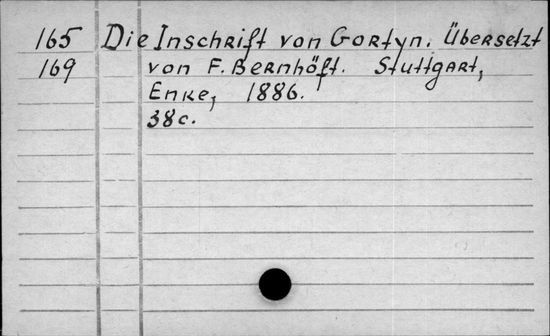 165 Die Inschrift von Gortyn. Übersetzt
169 von F. Bernhöft. Stuttgart,
Enke, 1886.
38c.